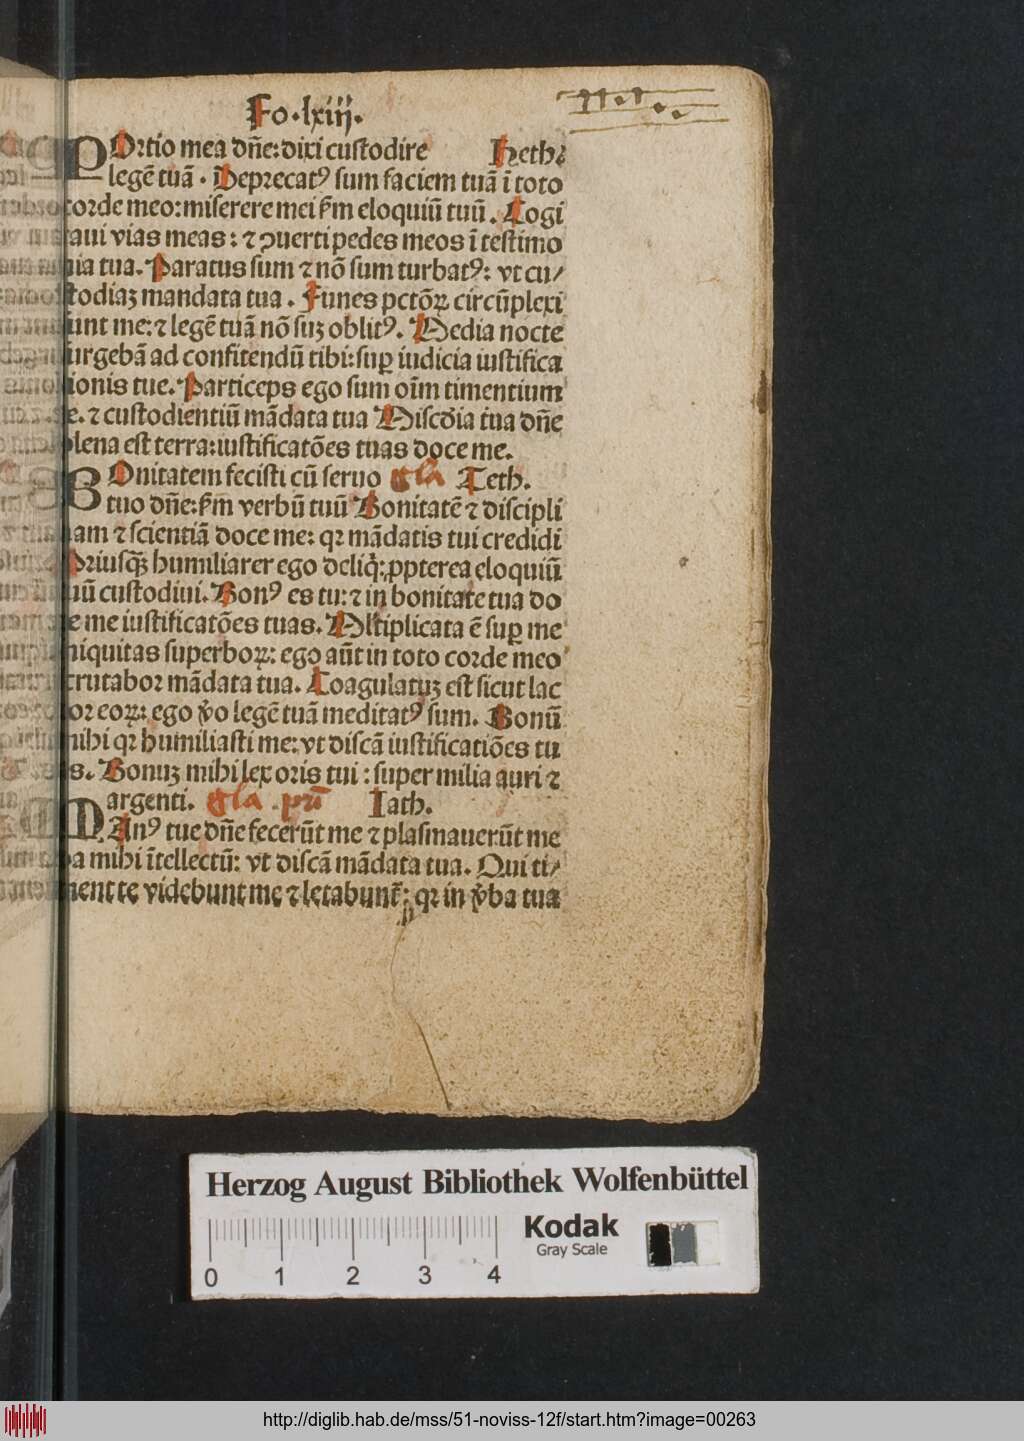 Fo.lxiij.
POrtio mea dñe: dixi custodire Heth.
legē tuā. Deprecatꝰ sum faciem tuā ī toto
corde meo: miserere mei ẜm eloquiū tuū. Cogi
taui vias meas: ⁊ ꝯuerti pedes meos ī testimo
nia tua. Paratus sum ⁊ nō sum turbatꝰ: vt cu/
stodiaꝫ mandata tua. Funes pctōꝝ circūplexi
sunt me: ⁊ legē tuā nō suꝫ oblitꝰ. Media nocte
surgebā ad confitendū tibi: suꝑ iudicia iustifica
tionis tue. Particeps ego sum oīm timentium
te. ⁊ custodientiū mādata tua Miscdia tua dñe
plena est terra: iustificatōes tuas doce me.
BOnitatem fecisti cū seruo gla Teth.
tuo dñe: ẜm verbū tuū Bonitatē ⁊ discipli
nam ⁊ scientiā doce me: qꝛ mādatis tui credidi
Priusqꝫ humiliarer ego deliq̇: ꝓpterea eloquiū
tuū custodiui. Bonꝰ es tu: ⁊ in bonitate tua do
ce me iustificatōes tuas. Mltiplicata ē suꝑ me
iniquitas superboꝝ: ego aūt in toto corde meo
scrutabor mādata tua. Coagulatuꝫ est sicut lac
cor eoꝝ: ego v̊o legē tuā meditatꝰ sum. Bonū
mihi qꝛ humiliasti me: vt discā iustificatiōes tu
as. Bonuꝫ mihi lex oris tui: super milia auri ⁊
argenti. gla. pr̄ Iath.
MAnꝰ tue dñe fecerūt me ⁊ plasmauerūt me
da mihi ītellectū: vt discā mādata tua. Qui ti/
ment te videbunt me ⁊ letabunt̄: qꝛ in v̊ba tua
Herzog August Bibliothek Wolfenbüttel
Kodak
Gray Scale
0 1 2 3 4
http://diglib.hab.de/mss/51-noviss-12f/start.htm?image=00263